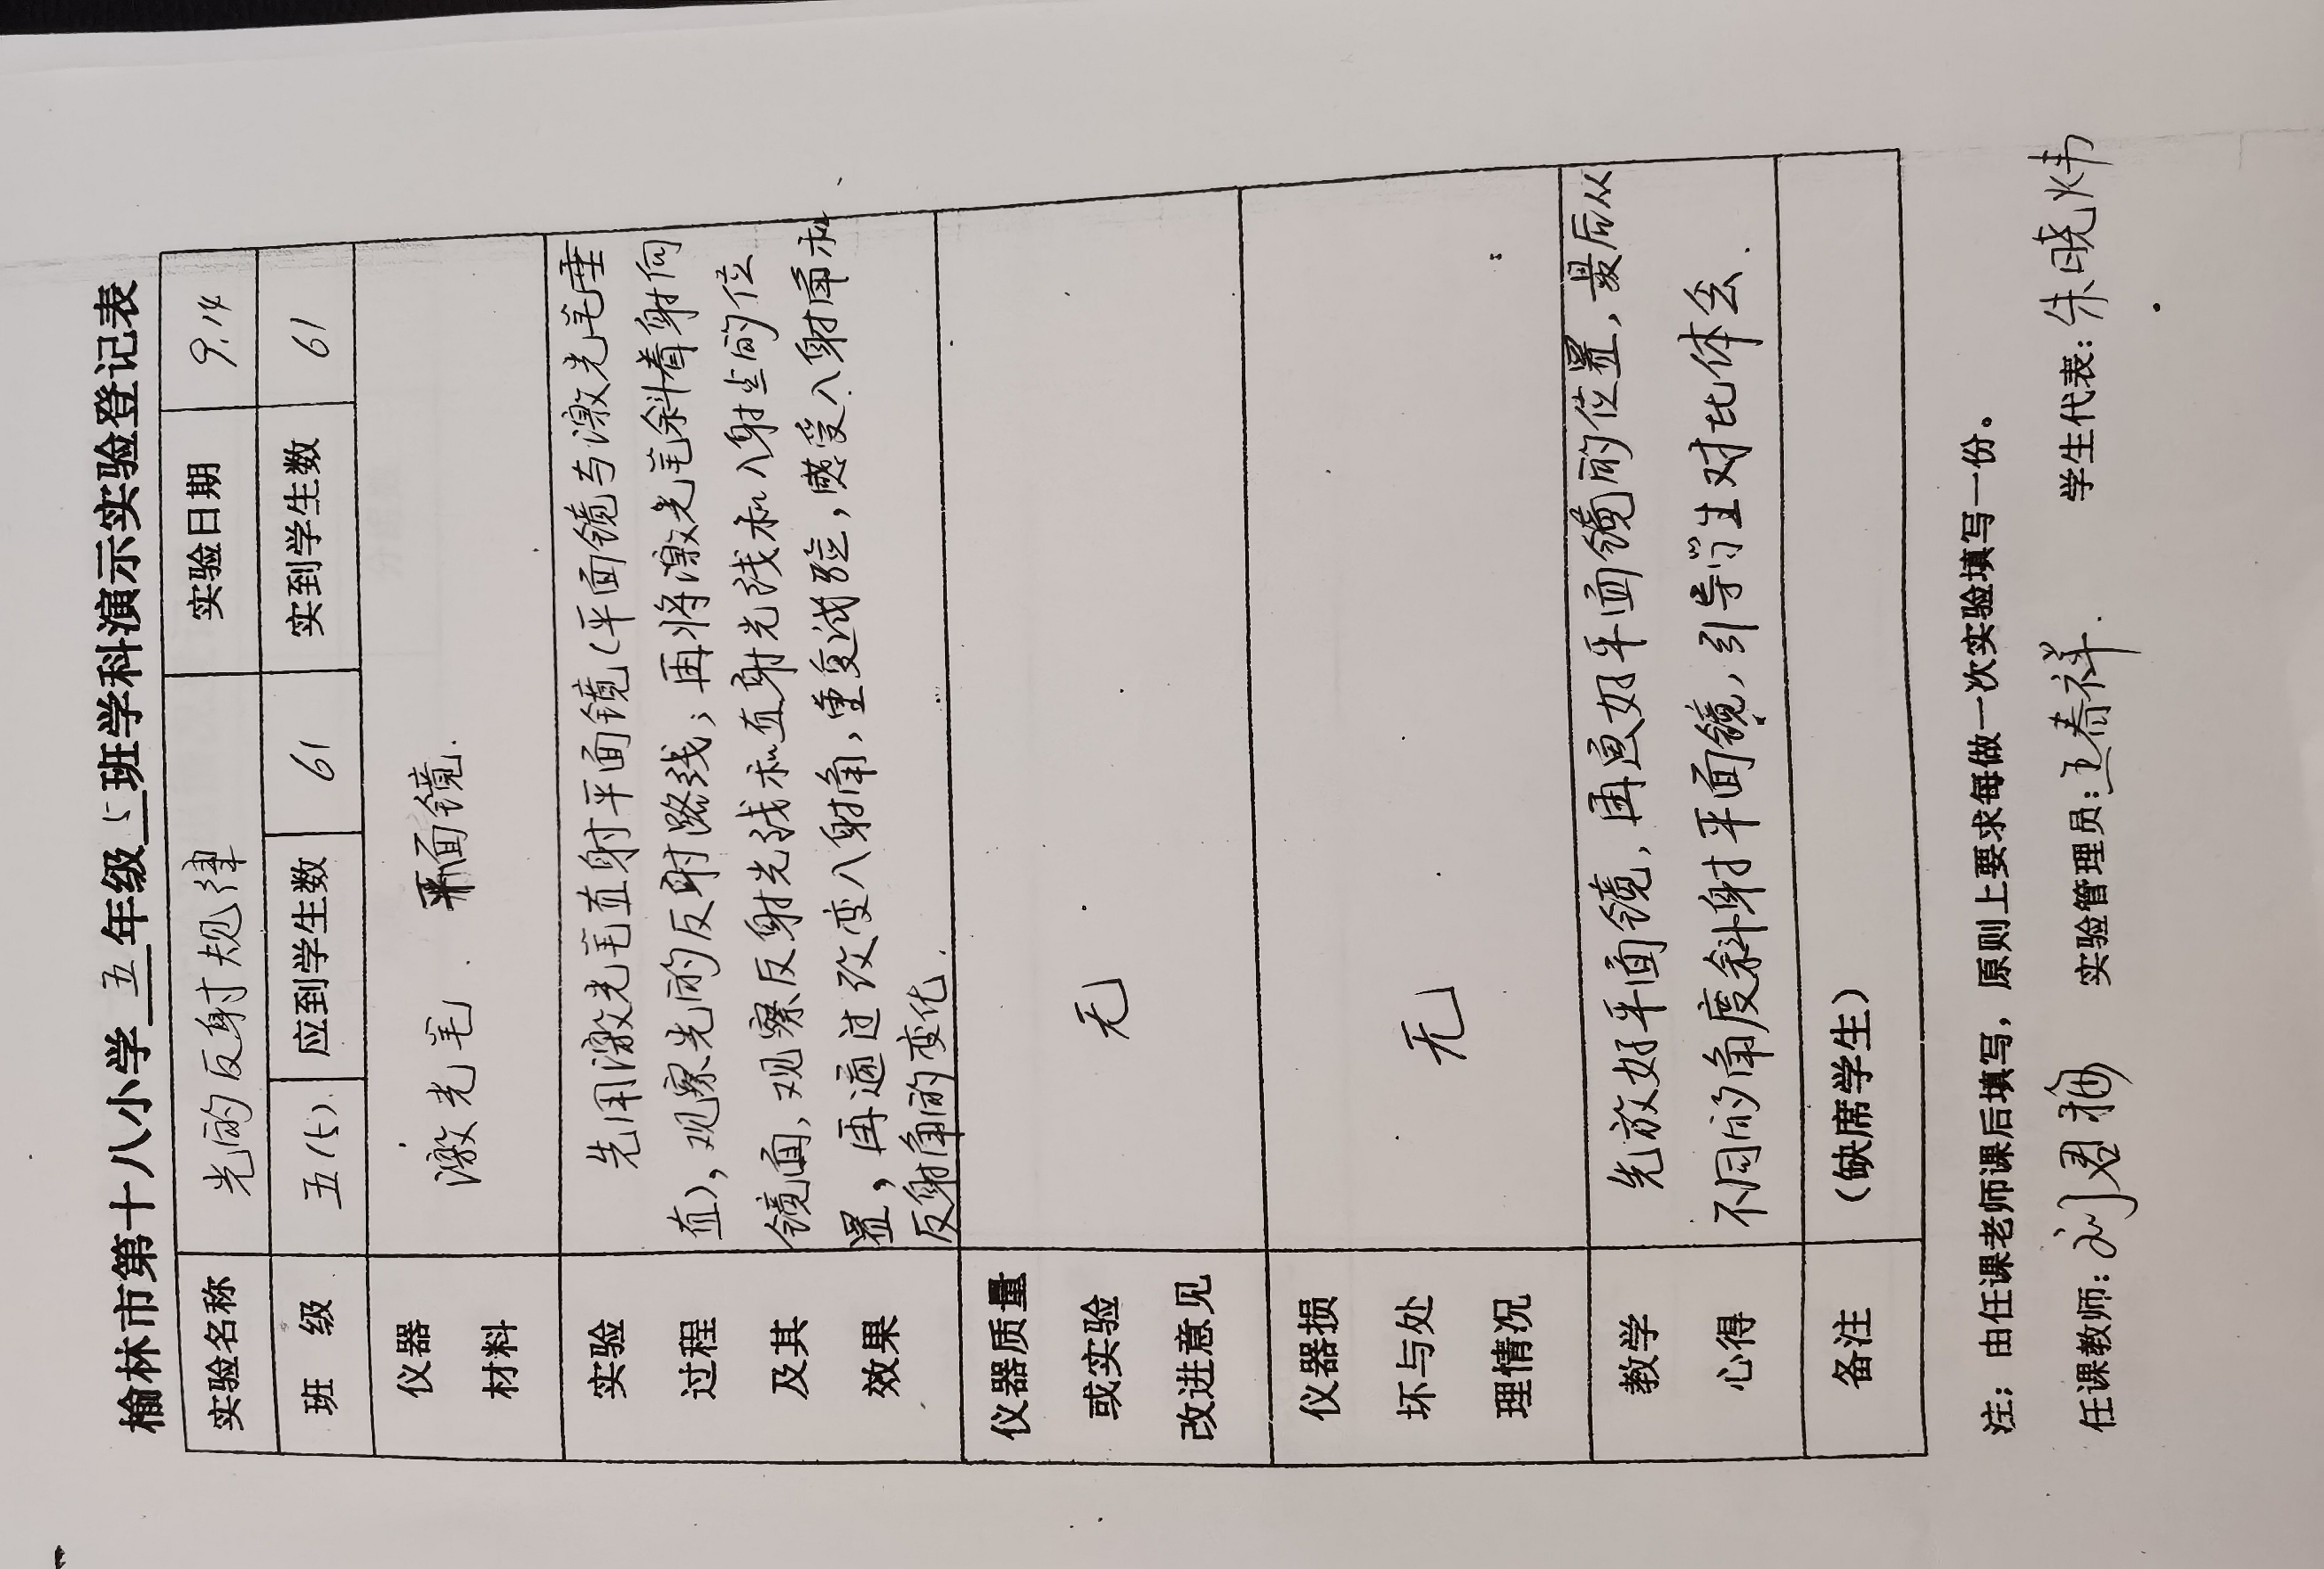 榆林市第十八小学五年级5班学科演示实验登记表
实验名称 光的反射规律 实验日期 9.14
班级 五(5). 应到学生数 61 实到学生数 61
仪器 激光笔. 平面镜.
材料
实验 先用激光笔直射平面镜(平面镜与激光笔垂
过程 直),观察光的反射路线;再将激光笔斜着射向
及其 镜面,观察反射光线和直射光线和入射尘的位
效果 置,再通过改变入射角,重复试验,感受入射角和
反射角的变化.
仪器质量
或实验 无
改进意见
仪器损
坏与处 无
理情况
教学 先放好平面镜,再画好平面镜的位置,最后从
心得 不同的角度斜射平面镜,引导学生对比体会.
备注 (缺席学生)
注:由任课老师课后填写,原则上要求每做一次实验填写一份。
任课教师:刘君梅 实验管理员:王春祥. 学生代表:朱晓炜